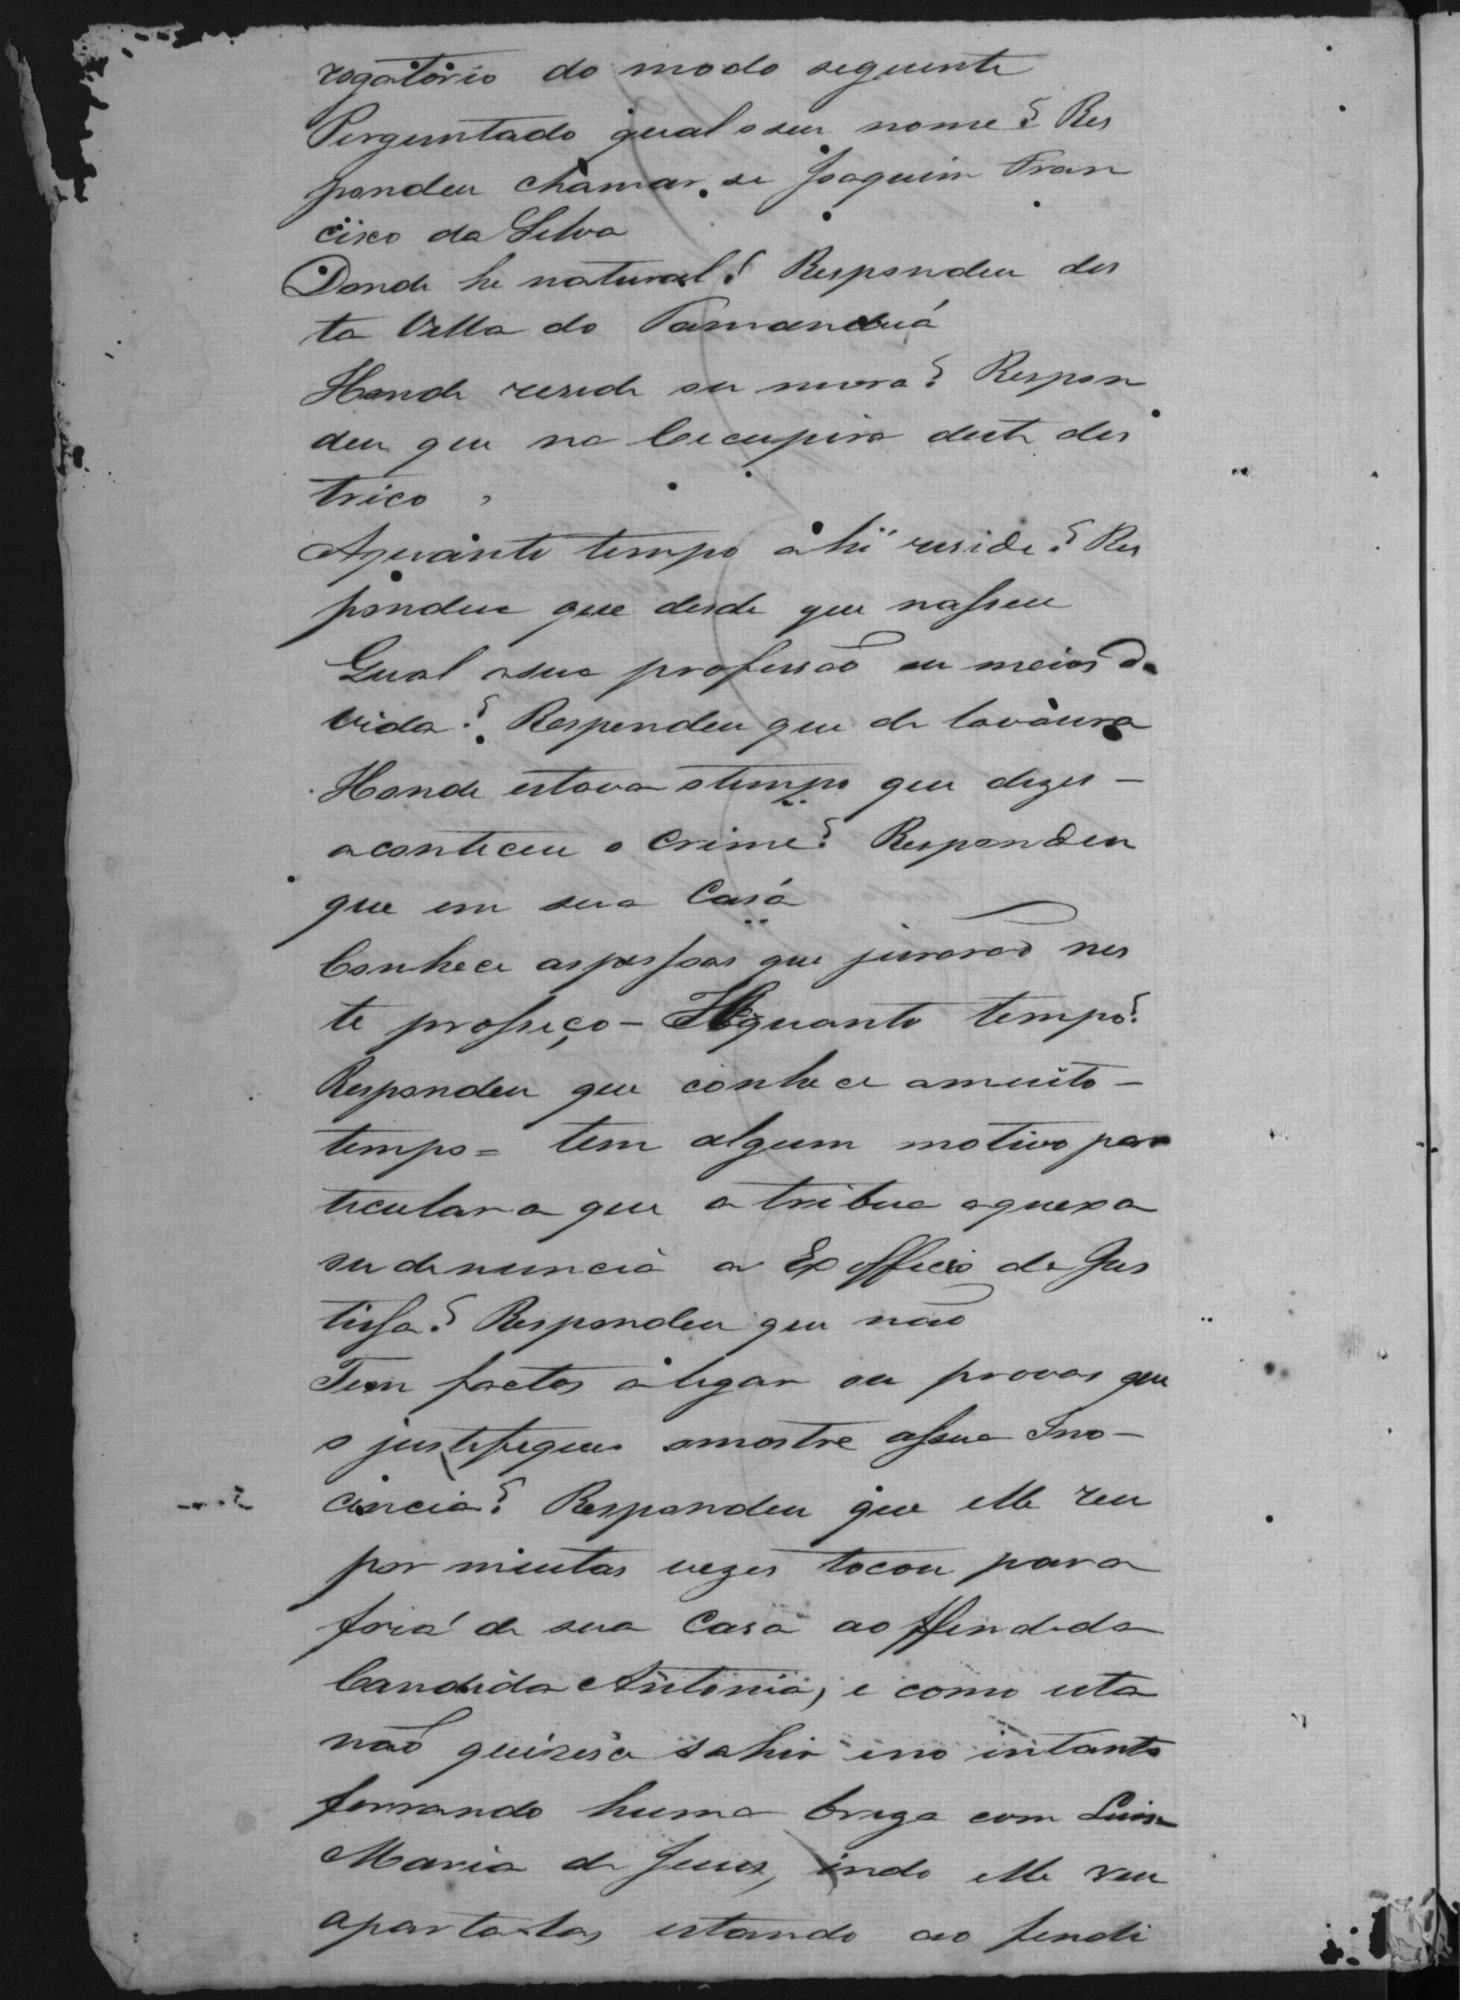 rogatorio do modo seguinte
Perguntado qual o seu nome? Res
pondeu chamar-se Joaquim Fran
cisco da Silva
Donde he natural? Respondeu des
ta Villa do Tamanduá
Honde reside ou mora? Respon
deu que na Cecupira deste des
trico,
Aquanto tempo ahi reside? Res
pondeu que desde que nasseu
Qual a sua profissaõ ou meios de
vida? Respondeu que de lavoura
Honde estava o tempo que dizes -
aconteceu o crime? Respondeu
que em sua Casa
Conhece as pessoas que juraraõ nes
te prosseço - Haquanto tempo?
Respondeu que conhece a muito -
tempo = tem algum motivo par
ticular a que atribua a quexa
ou denuncia a Ex officio da Jus
tissa? Respondeu que naõ
Tem factos a legar ou provas que
o justifiquem a mostre a ssua Ino-
cencia? Respondeu que elle reu
por muitas vezes tocou para
fora de sua Casa ao ffendida
Candida Antonia, e como esta
naõ quizesa sahir e no intanto
formando huma briga com Luisa
Maria de Jesus, indo elle reu
aparta-las estando ao fendi